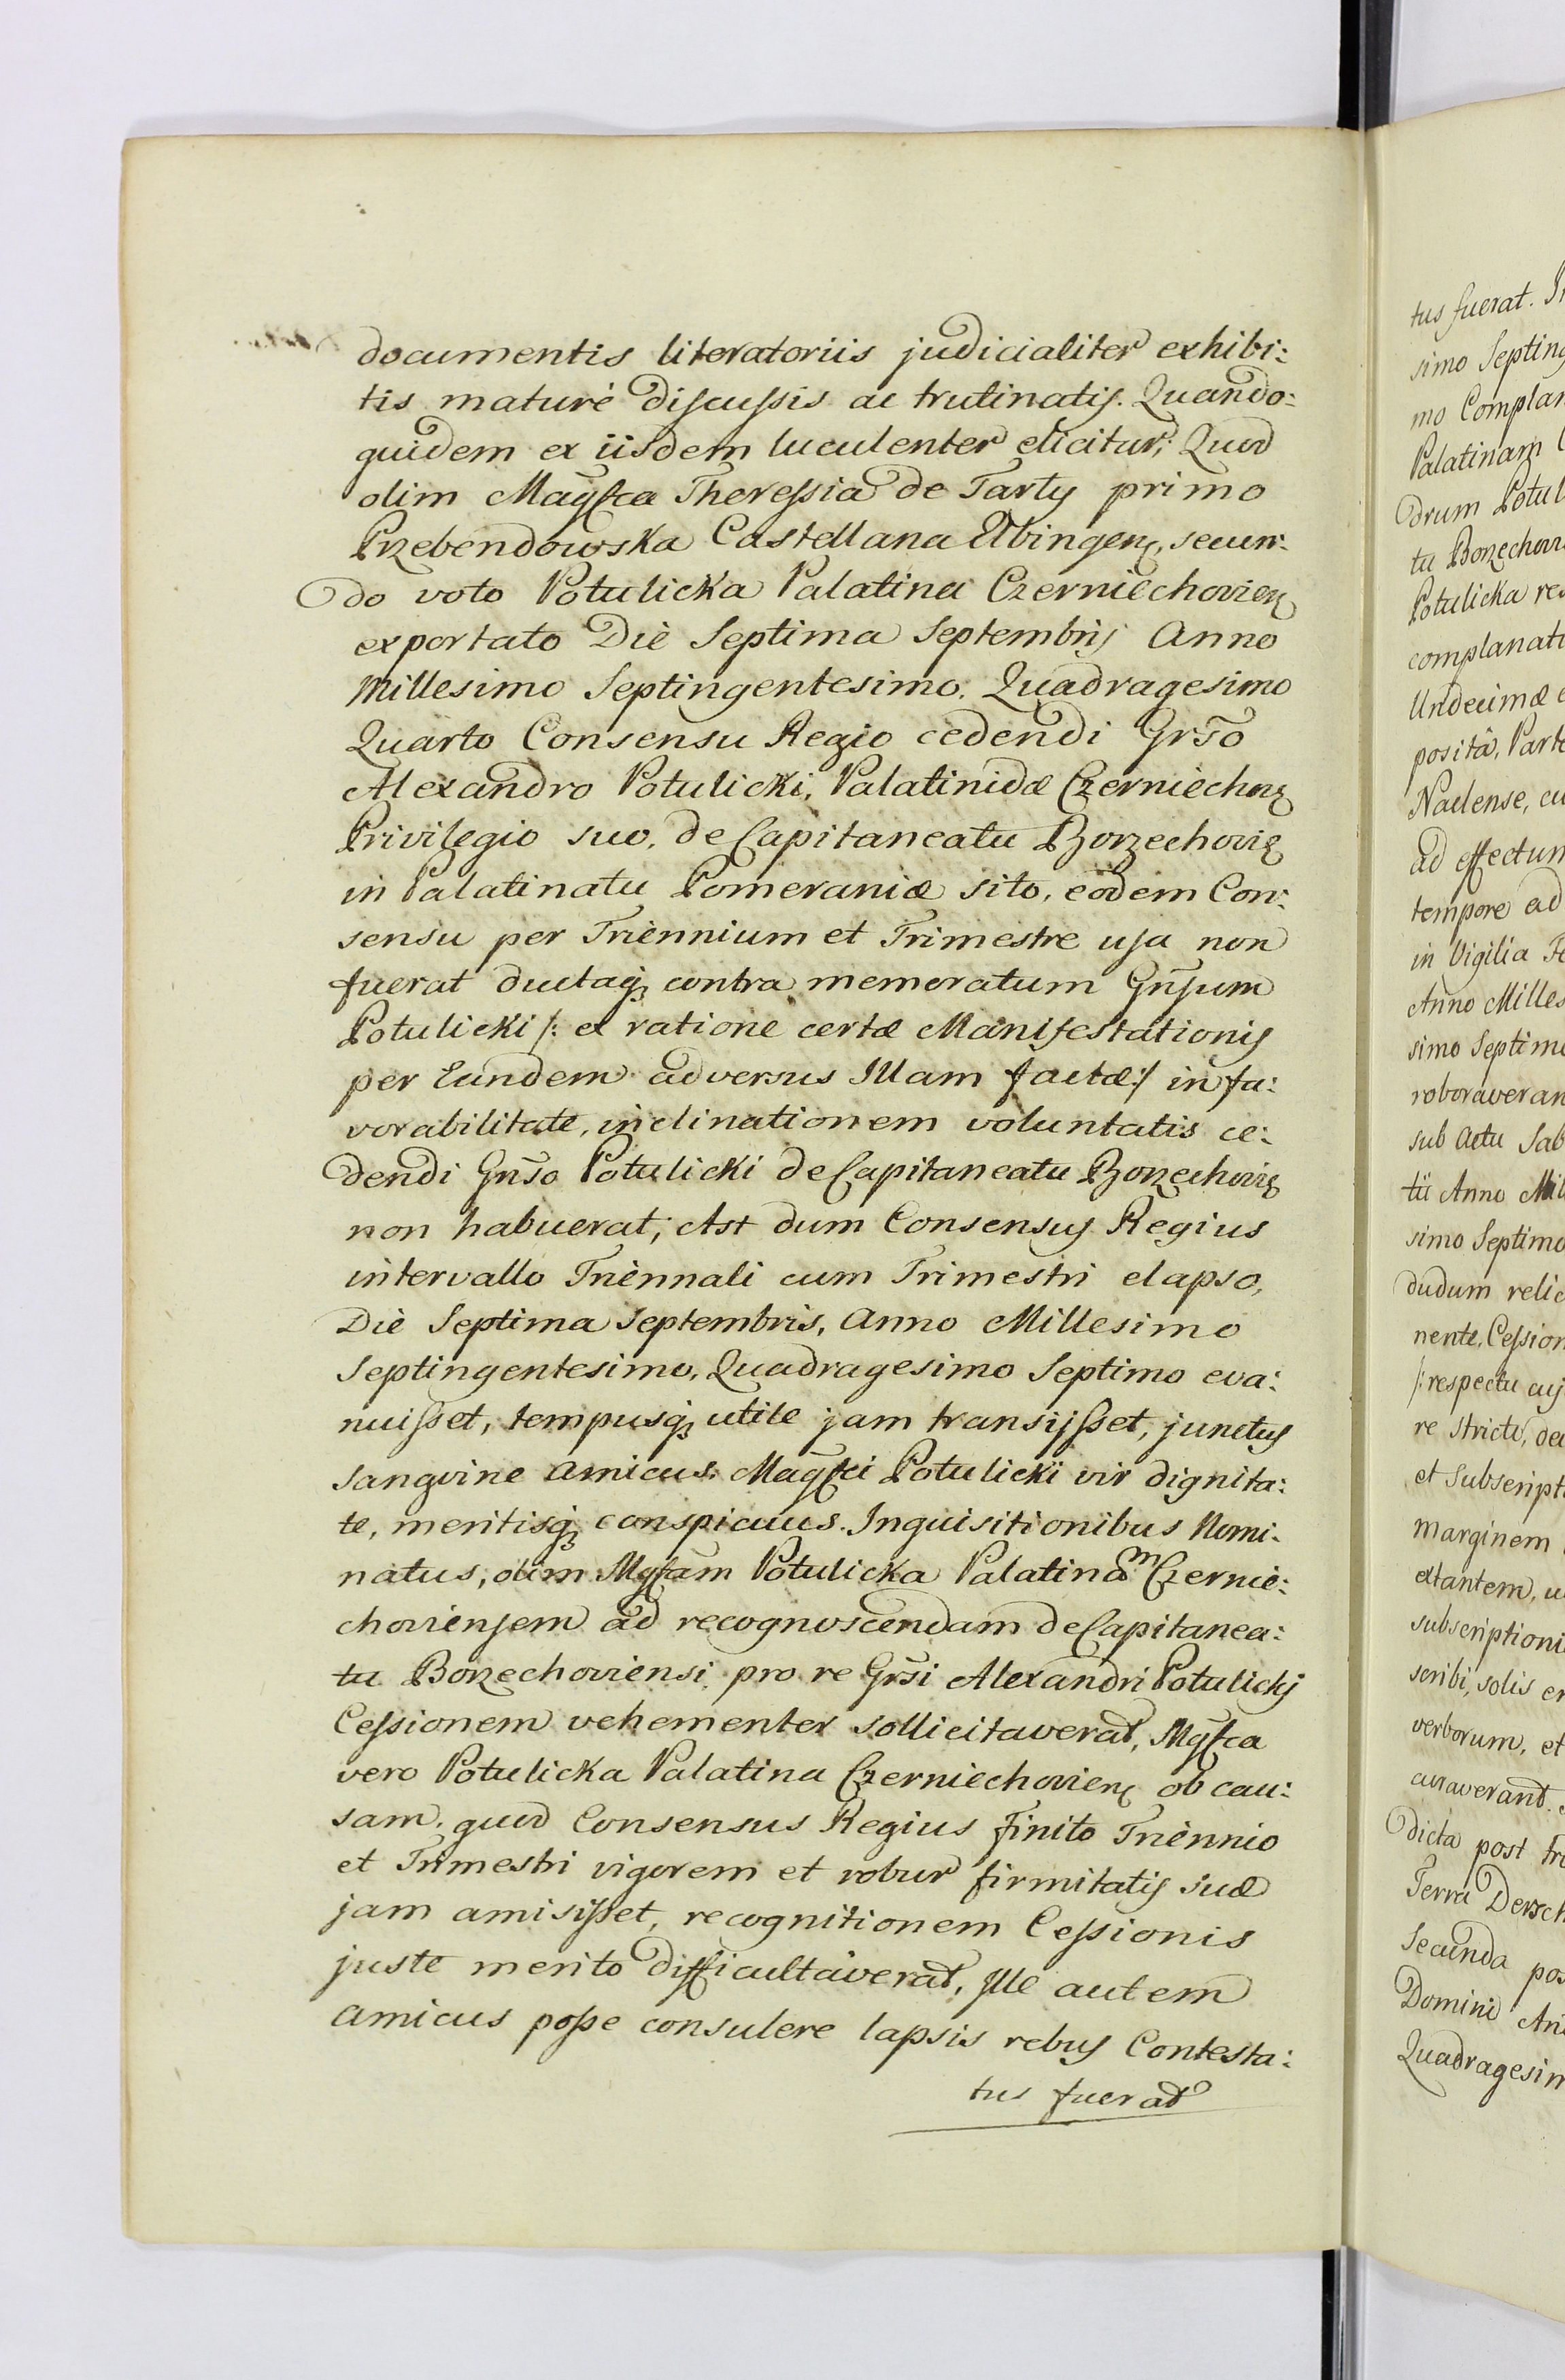 documentis literatoriis judicialiter exhibi:
tis maturè discussis ac trutinatis. Quando:
quidem ex iisdem luculenter elicitur; Quod
olim Magfca Theressia de Tarły primo
Przebendowska Castellana Elbingen, secun:
do voto Potulicka Palatina Czerniechovien
exportato Die Septima Septembris Anno
Millesimo Septingentesimo. Quadragesimo
Quarto Consensu Regio cedendi Grso
Alexandro Potulicki, Palatinidæ Czerniechov
Privilegio suo, de Capitaneatu Borzechovie
in Palatinatu Pomeraniæ sito, eodem Con:
sensu per Triennium et Trimestre usa non
fuerat ductaq; contra memoratum Gnsum
Potulicki /: ex ratione certæ Manifestationis
per Eundem adversus Illam factæ:/ in fa:
vorabilitate, inclinationem voluntatis ce:
dendi Gnso Potulicki de Capitaneatu Borzechovie
non habuerat; Ast dum Consensus Regius
intervallo Triennali cum Trimestri elapso,
Die Septima Septembris, Anno Millesimo
Septingentesimo, Quadragesimo Septimo eva:
nuisset, tempusq; utile jam transijsset, junctus
sangvine amicus Magfci Potulicki vir dignita:
te, meritisq; conspicuus. Inquisitionibus Nomi:
natus, olim Mgfcam Potulicka Palatinam Czernie:
choviensem ad recognoscendam de Capitanea:
tu Borzechoviensi pro re Grsi Alexandri Potulickj
Cessionem vehementer sollicitaverat, Mgfca
vero Potulicka Palatina Czerniechovien ob cau:
sam, quod Consensus Regius finito Triennio
et Trimestri vigorem et robur firmitatis suæ
jam amisisset, recognitionem Cessionis
juste merito difficultaverat, Ille autem
amicus posse consulere lapsis rebus Contesta:
tus fuerat
tus fuerat.
simo Septing
mo Complan
Palatinam
drum Potul
tu Borzechov
Potulicka re
complanati
Undecimæ
posità, Parte
Naclense, cu
ad effectum
tempore ad
in Vigilia Fe
Anno Milles
simo Septimo
roboraveran
sub actu Sab
tii Anno Mil
simo Septimo
dudum relic
nente, Cession
/: respectu cuj
re stricte, de
et Subscript
marginem
extantem, u
subscriptioni
scribi, solis er
verborum, et
curaverant.
dicta post tr
Terra Dersch
Secunda pos
Domini An
Quadragesim